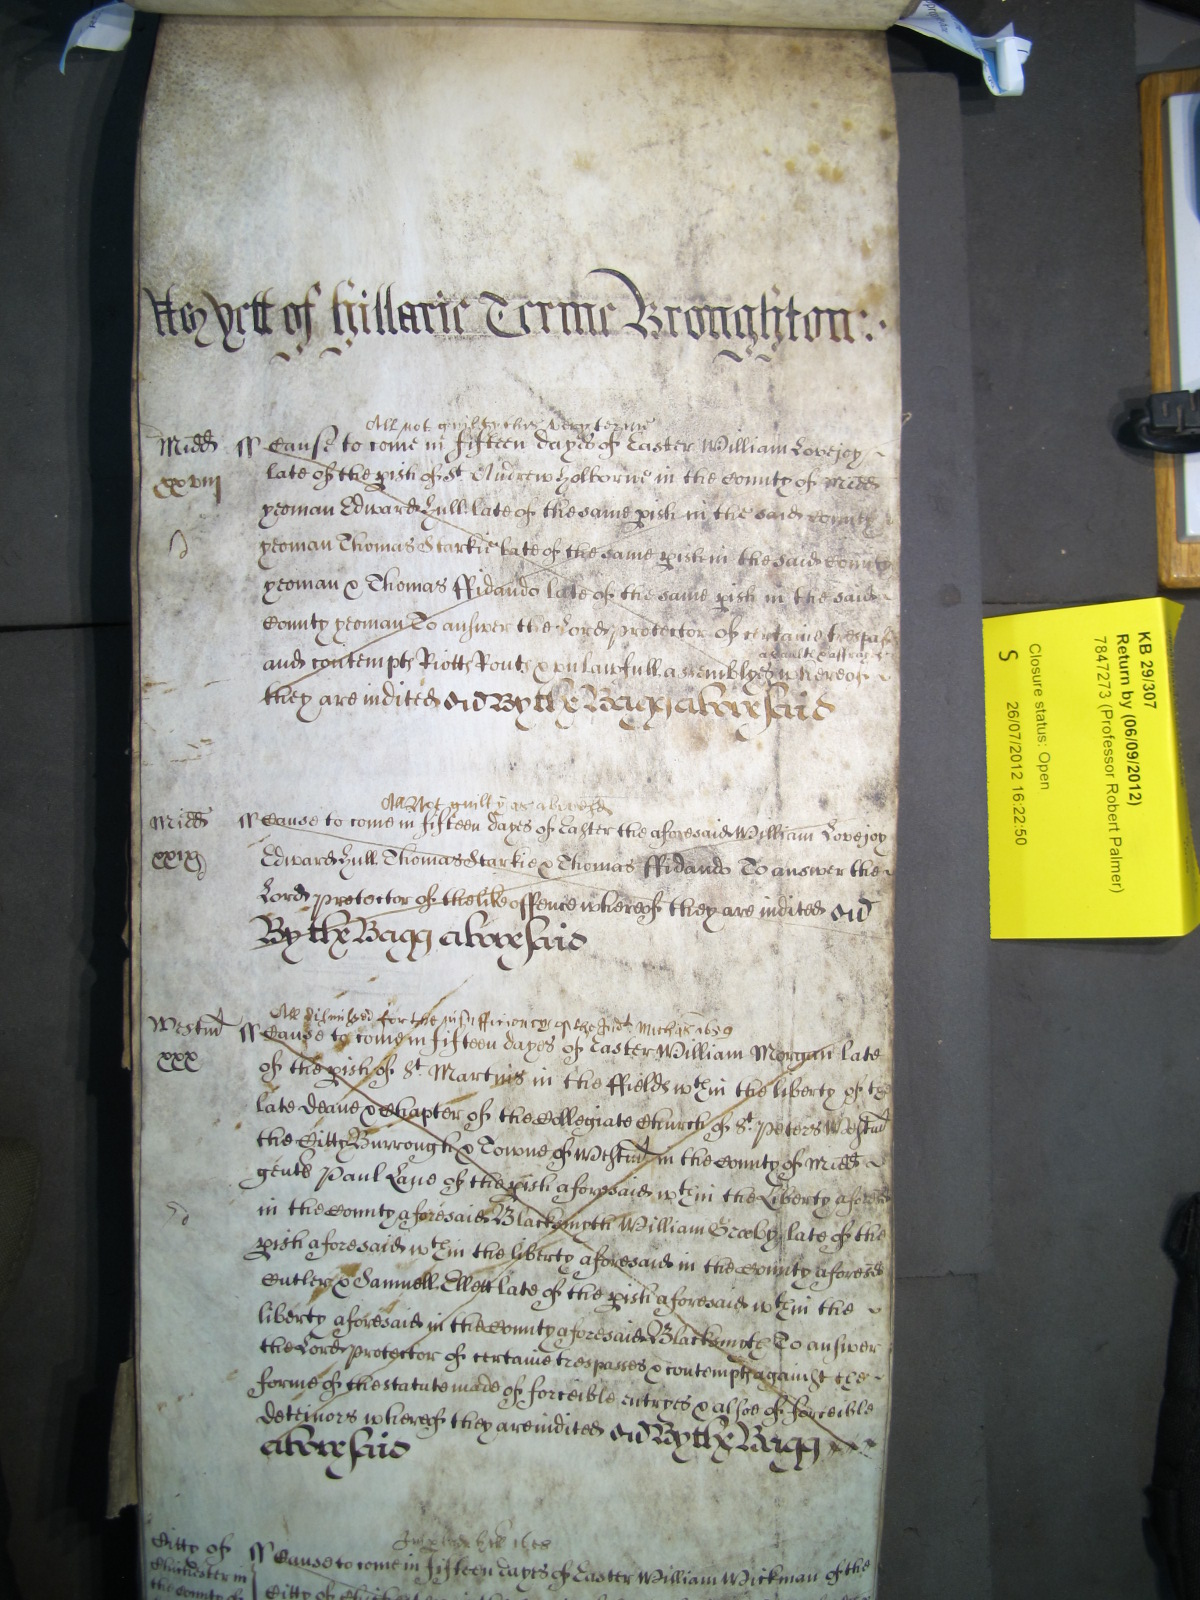 As yett of Hillarie Terme Broughton:
All not guilty this very terme
Midd ss Cause to come in fifteen dayes of Easter William Lovejoy
xxviii late of the pish of St. Andrew Holborne in the County of Midd
yeoman Edward Hull late of the same pish in the said County
yeoman Thomas Starkie late of the same pish in the said County
yeoman & Thomas ffidando late of the same pish in the said
County yeoman To answer the Lord protector of certaine trespas
assaults & affrayes
and contempts Riotts Routs & unlawfull assemblyes whereof
they are indited By the Bagg abovesaid
All Not guilty as above
Midd ss Cause to come in fifteen dayes of Easter the aforesaid William Lovejoy
xxix Edward Hull Thomas Starkie & Thomas ffidando To answer the
Lord protector of the like offence whereof they are indited
By the Bagg abovesaid
All dismissed for the insufficiency of the Indt. Michas 1659
Westmr ss Cause to come in fifteen dayes of Easter William Morgan late
xxx of the pish of St. Martins in the ffields wthin the liberty of the
late Deane & Chapter of the Collegiate Church of St. Peters Westmr
the Citty Burrough & Towne of Westmr in the County of Midd
gents Paul Lane of the pish aforesaid wthin the Liberty aforesd
in the County aforesaid Blacksmyth William late of the
pish aforesaid wthin the liberty aforesaid in the County aforesd
Cutler & Samuell Ellett late of the pish aforesaid wthin the
liberty aforesaid in the County aforesaid Blacksmyth To answer
the Lord protector of certaine trespasses & contempts against the
forme of the statute made of forceible entryes & alsoe of forceible
deteinors whereof they are indited By the Bagg
abovesaid
Citty of ss Cause to come in fifteen dayes of Easter William Wickman of the
Chichester in Citty of
the County of
KB 29/307
Return by (06/09/2012)
7847273 (Professor Robert Palmer)
Closure status: Open
S 26/07/2012 16:22:50